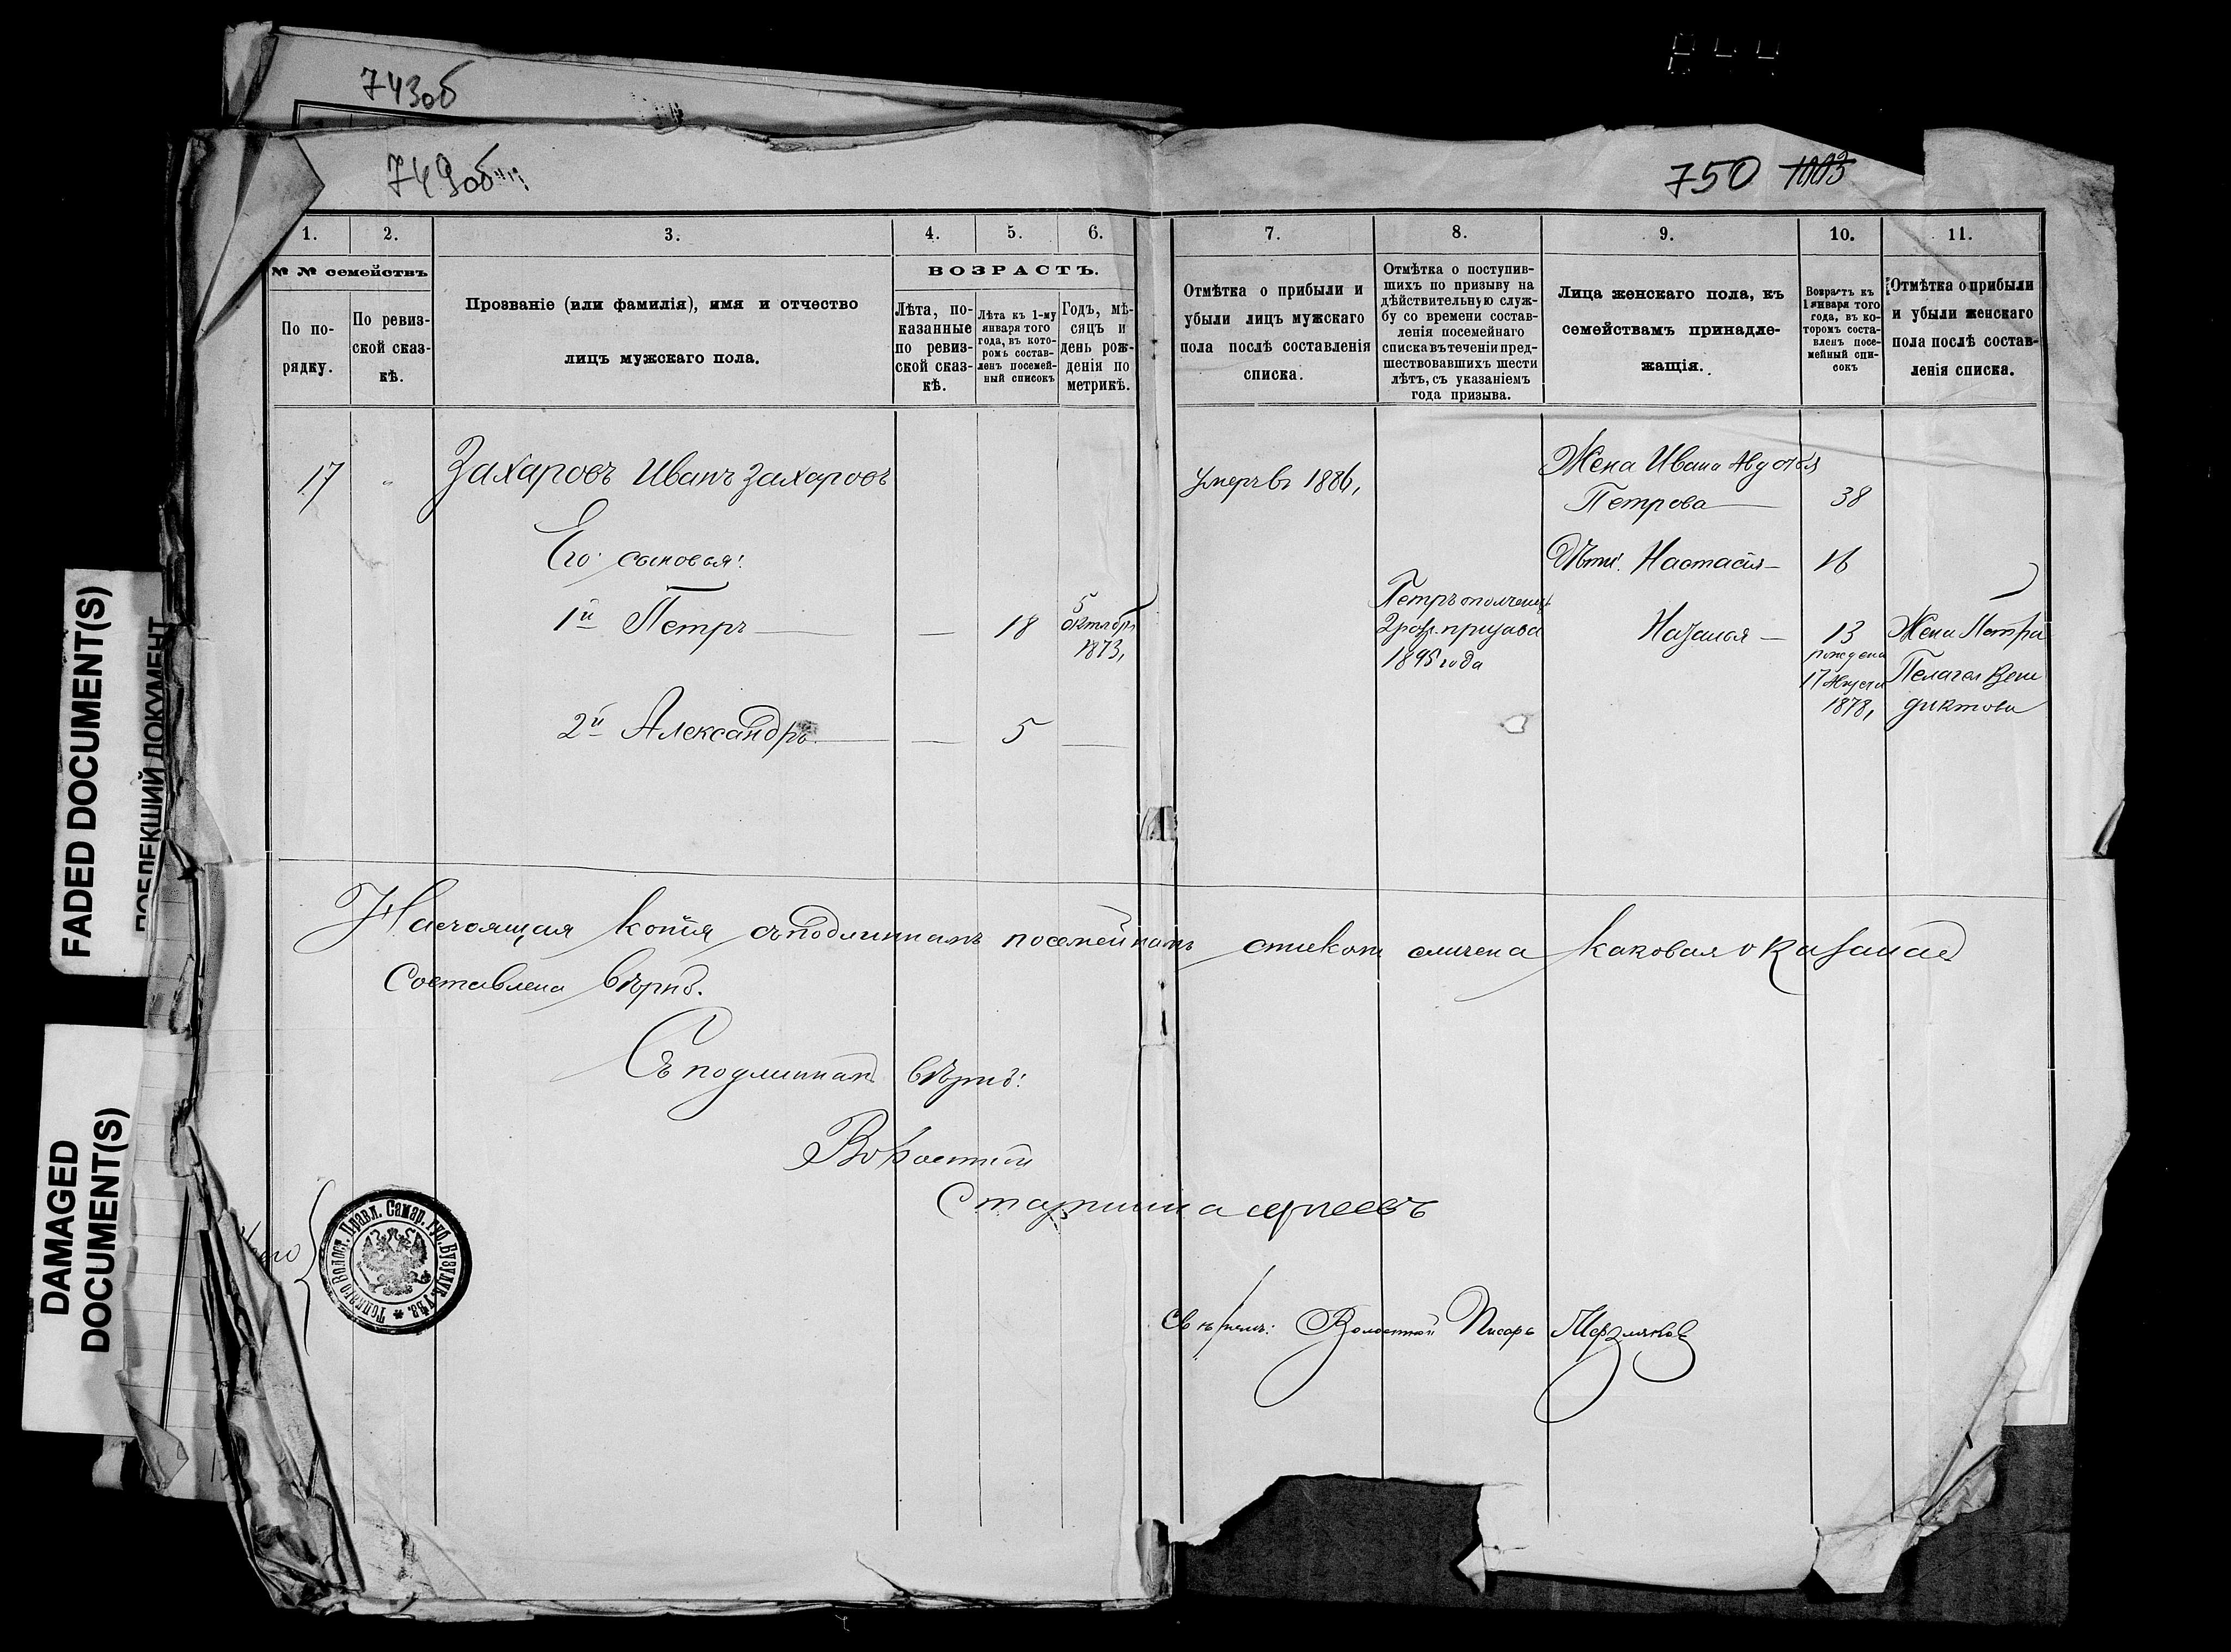 743об
749об
750 1003
1.
2.
3.
4.
5.
6.
7.
8.
9.
10.
11.
№ № семействъ
По по-
рядку.
По ревиз-
ской сказ-
кѣ.
Прозваніе (или фамилія), имя и отчество
лицъ мужскаго пола.
ВОЗРАСТЪ.
Лѣта, по-
казанные
по ревиз-
ской сказ-
кѣ.
Лѣта къ 1-му
января того
года, въ кото-
ромъ состав-
ленъ посемей-
ный списокъ
Годъ, мѣ-
сяцъ и
день рож-
денія по
метрикѣ.
Отмѣтка о прибыли и
убыли лицъ мужскаго
пола послѣ составленія
списка.
Отмѣтка о поступив-
шихъ по призыву на
дѣйствительную служ-
бу со времени состав-
ленія посемейнаго
списка въ теченіи пред-
шествовавшихъ шести
лѣтъ, съ указаніемъ
года призыва.
Лица женскаго пола, къ
семействамъ принадле-
жащія.
Возрастъ къ
1 января того
года, въ ко-
торомъ соста-
вленъ посе-
мейный спи-
сокъ
Отмѣтка о прибыли
и убыли женскаго
пола послѣ состав-
ленія списка.
17 " Захаровъ Иванъ Захаровъ
Его сыновья:
1й Петръ — — 18
5
октября
1873,
2й Александръ — — 5 —
Умеръ въ 1886,
Петръ ополченецъ
2 разр. призыва
1895 года
Жена Ивана
Петрова — 38
Дѣти: Настасія — 16
— 13
рождена
17 Августа
1878,
Жена Петра
Пелагея Вени
диктова
Настоящая копія съ подлиннымъ посемейнымъ спискомъ сличена каковая оказалась
составлена вѣрно.
Съ подлиннымъ вѣрно:
Волостной
Старшина
Волостной Писарь
Толкаго Волост. Правл. Самар. губ. Бузулук. уѣз.
FADED DOCUMENT(S)
ДОКУМЕНТ
DAMAGED
DOCUMENT(S)